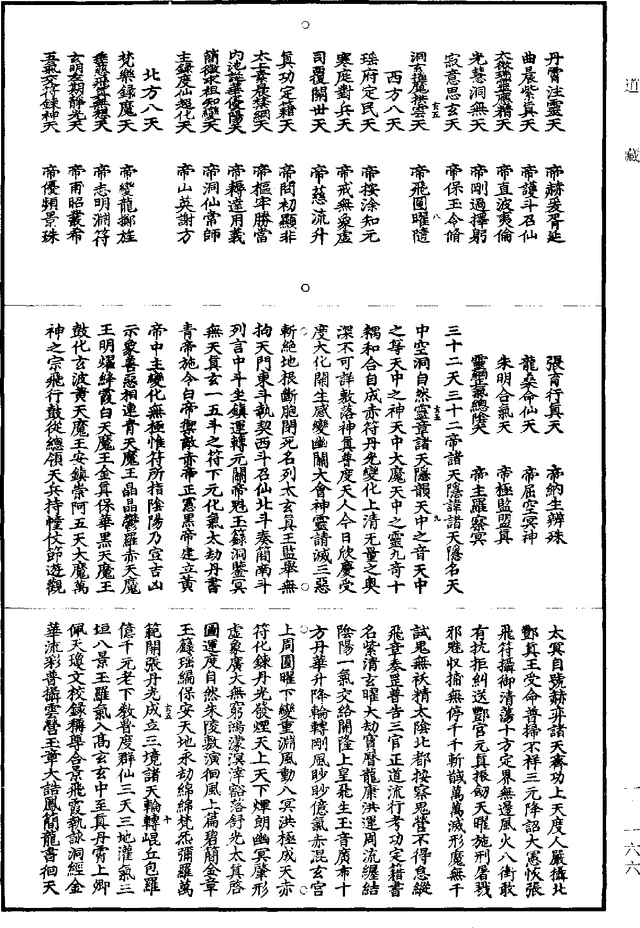 道藏
丹霄注靈天　帝赫爰胥延
曲晨紫真天　帝護斗召仙
太微瑞靈康精天　帝直波夷倫
光慧洞無天　帝剛過擇躬
寂意思玄天　帝保玉令脩
洞玄攝魔摧雲天　帝飛圓曜隨
西方八天
瑤府定民天　帝按涂知元
寒庭對兵天　帝戒無衆虛
司覆開世天　帝慈流升
真功定籍天　帝問初顯非
太玉素展葉綱天　帝樞牢勝當
內池謐華優陽天　帝轉達用義
簡微求祖知變天　帝洞仙常師
主錄度仙超化天　帝山英謝方
北方八天
梵樂錄魔天　帝變龍擲旌
垂慈飛真無想天　帝志明淵符
玄明左朝靜光天　帝甫昭叢希
五氣交符鍊神天　帝優頻景珠
張育行真天　帝納生辨殊
龍桑命仙天　帝屈空冥神
朱明合氣天　帝極監盟真
靈網氣總陰天　帝主羅察冥
三十二天三十二帝諸天隱諱諸天隱名天
中空洞自然靈章諸天隱韻天中之音天中
之尊天中之神天中大魔天中之靈九音十
耦和合自成赤符丹光變化上清无量之奧
深不可詳敷落神真普度天人今日欣慶受
度大化開生感變幽關大會神靈請滅三惡
斬絶地根斷胞閉死名列太玄真王監舉無
拘天門東斗執契西斗召仙北斗奏簡南斗
列言中斗坐鎮運轉元關帝魁玉籙洞鑒冥
無天真玄一五斗之符下元化氣太劫丹書
青帝施令白帝禦敵赤帝正憲黑帝建立黄
帝中主變化無極惟符所指陰陽乃宣吉凶
示象善惡相連青天魔王晶晶鬱羅赤天魔
王明燿絳霞白天魔王金真保華黑天魔王
鼓化玄波黄天魔王安鎮崇阿五天大魔萬
神之宗飛行鼓從總領天兵持幢仗節遊觀
太冥自號赫弈諸天齋功上天度人嚴攝北
酆真王受命普掃不祥三元降詔大憲恢張
飛符攝御清蕩十方定界無邊風火八衝敢
有抗拒糾送酆官元真振劒天曜施刑屠戮
邪魃収捕無停千千斬馘萬萬滅形魔無干
試鬼無袄精太陰北都按察鬼營不得怠縱
飛章奏罡普告三官正道流行考功定籍書
名紫清玄曜大劫寶曆龍康洪運周流纏結
陰陽一氣交給開隆上皇飛生玉音廣布十
方丹華升降輪轉剛風眇眇億氣赤混玄宮
上周圓曜下變重淵風動八冥洪極成天赤
符化鍊丹光發煙天上天下煇朗幽冥肇形
虛象廣大無窮鴻濛溟涬豁落舒光太真啓
圖運度自然朱陵敷演徊風上篇碧簡金章
王籙瑤編保安天地永劫綿綿梵炁彌羅萬
範開張丹光成立三境諸天輪轉崐丘包羅
億千元老下教普度群仙三天三地灌氣三
垣八景玉羅氣入高玄玄中至真丹霄上卿
佩天瓊文校録稱尊合景飛霞執詠洞經金
華流彩普攝雲營玉章大誥鳳簡龍書徊天
一　一六六